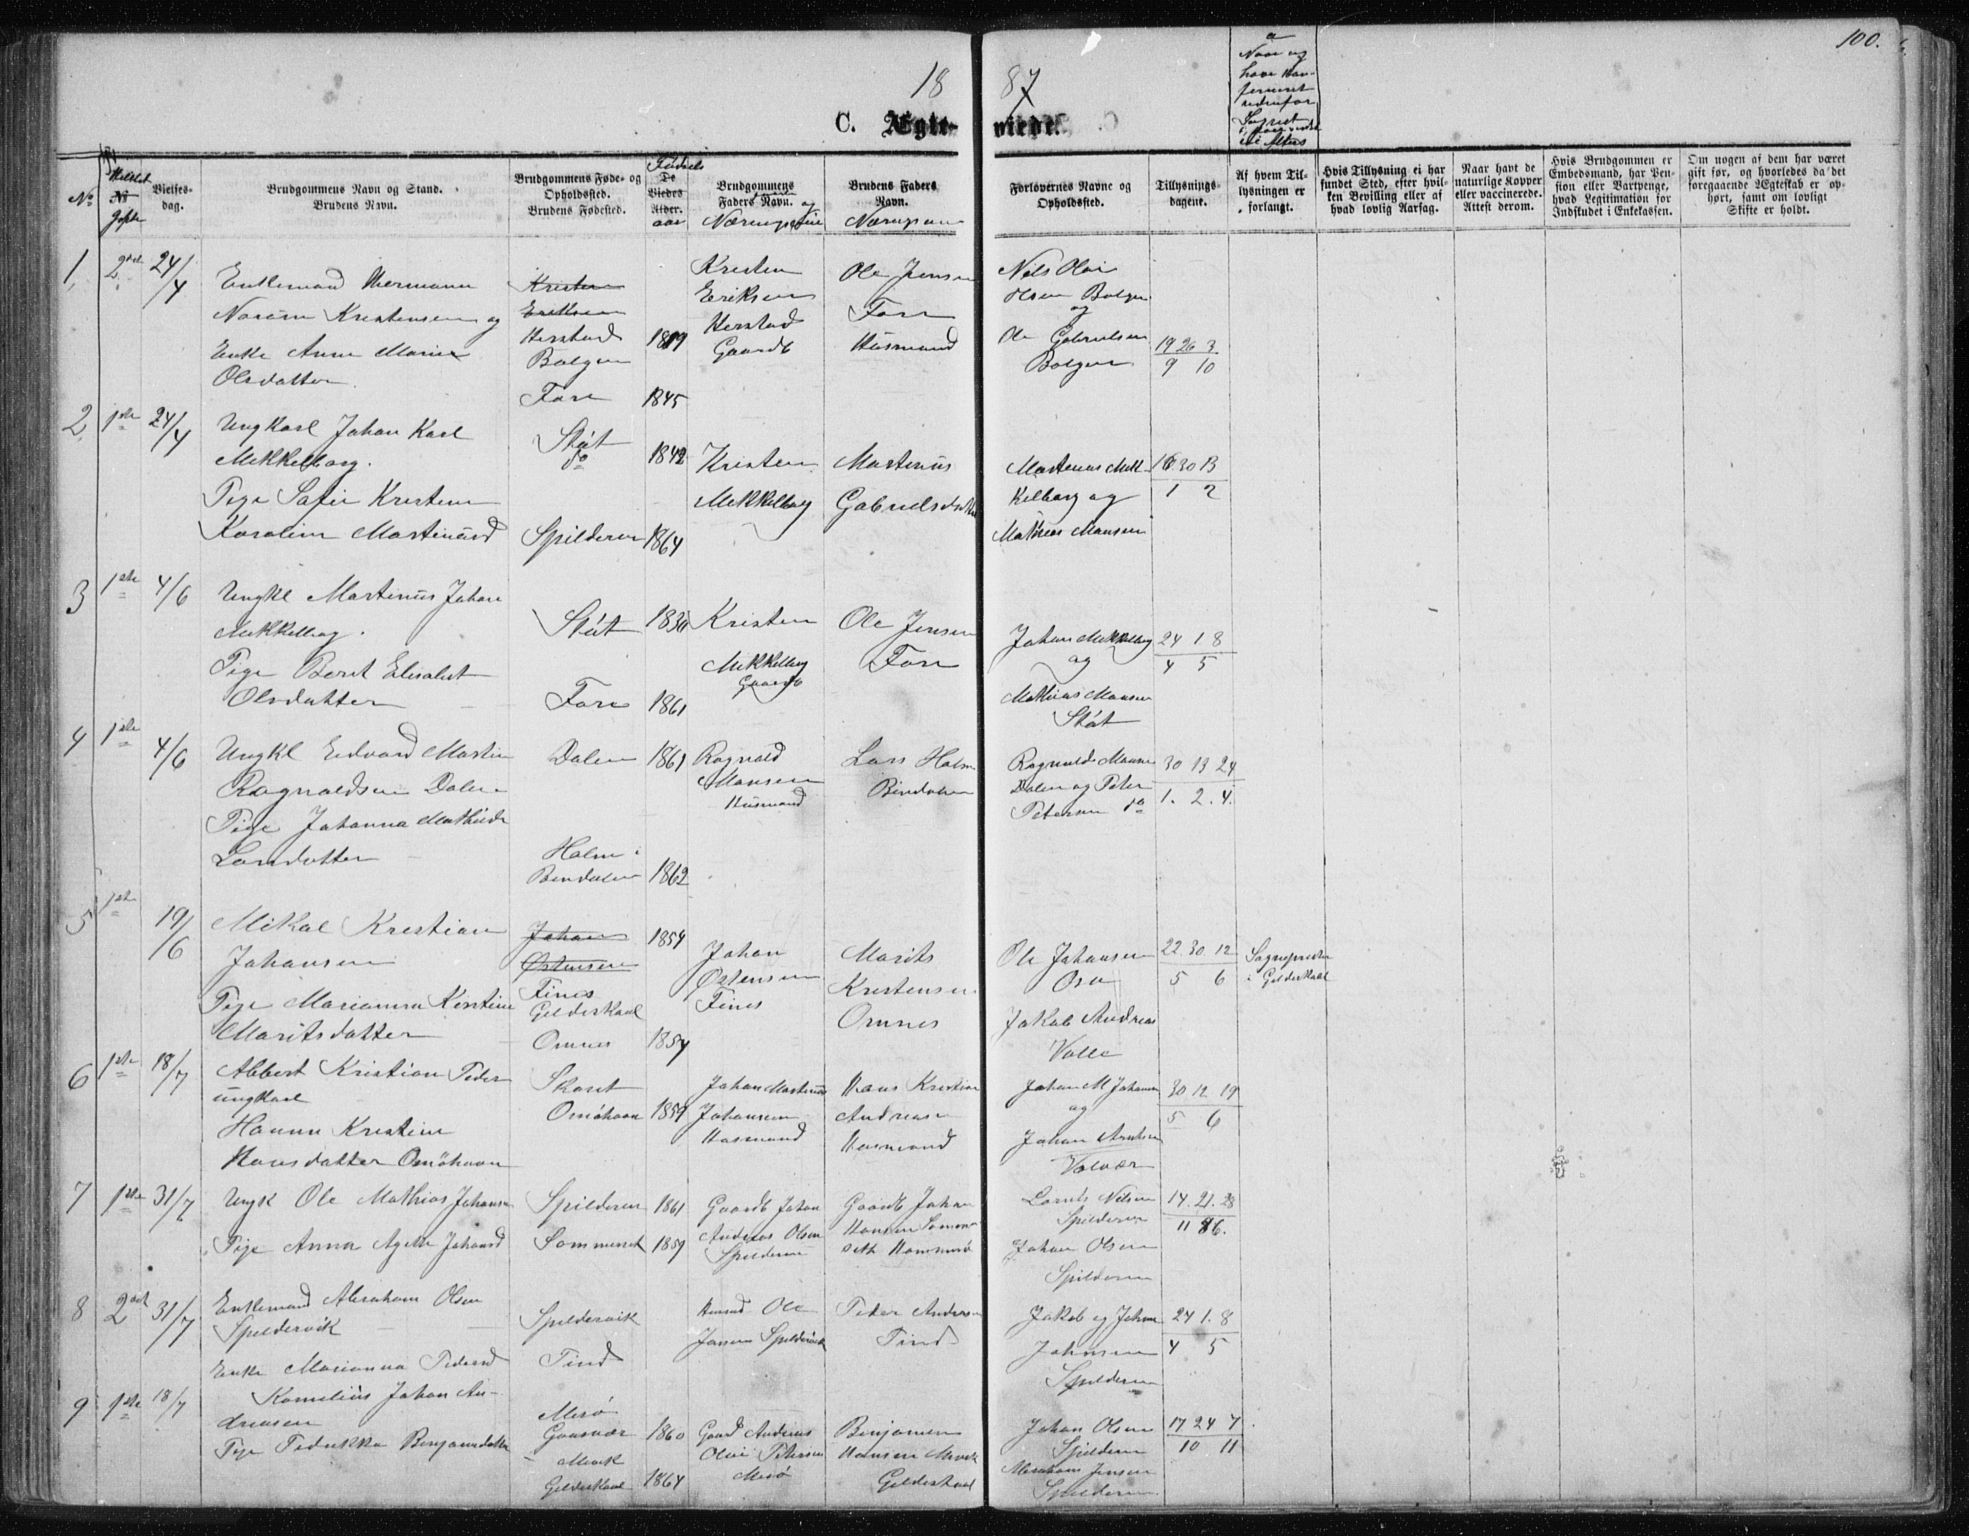 100.
18 87
C. Ægte- viede.
No
Vielses-
dag.
Brudgommens Navn og Stand.
Brudens Navn.
Brudgommens Føde- og
Opholdssted.
Brudens Fødested.
Fødsels
De
Viedes
Alder.
aar
Brudgommens
Faders Navn. og
Brudens Faders
Navn.
Forlovernes Navne og
Opholdssted.
Tillysnings-
dagene.
Af hvem Til-
lysningen er
forlangt.
Hvis Tillysning ei har
fundet Sted, efter hvil-
ken Bevilling eller af
hvad lovlig Aarsag.
Naar havt de
naturlige Kopper
eller vaccinerede.
Attest derom.
Hvis Brudgommen er
Embedsmand, har Pen-
sion eller Vartpenge,
hvad Legitimation for
Indskud i Enkekassen.
Om nogen af dem har været
gift før, og hvorledes da det
foregaaende Ægteskab er op-
hørt, samt om lovligt
Skifte er holdt.
1, 24/4
Enkemand Hermann
Kristensen og
Enke Anne Marie
Olsdatter.
Kristen
Eriksen
Herstad
Bolgen
Fore 1845
Kristen
Eriksen
Herstad
Gaardb
Ole Jensen
Fore
Husmand
Nels Olai
Olsen Bolgen
og
Ole Gabrielsen
Bolgen
19 26 3
9 10
2 1ste 24/4
Ungkarl Johan Karl
Mekkelborg.
Pige Sofie Kristine
Karoline Martinusd
Støt
do 1842
Spilderen 1864
Kristen
Mekkelborg
Martinus
Martinus Mek
kelborg og
Mathias Monsen
16 30 13
1 2
3 1ste 4/6
Ungkl Martinus Johan
Mekkelborg.
Pige Beret Elisabet
Olsdatter
Støt 1830
Fore 1861
Kristen
Mekkelborg
Gaardb
Ole Jensen
Fore
Johan Mekkelborg
og
Mathias Monsen
Støt
24 1 8
4 5
4 1ste 4/6
Ungkl Edvard Martin
Ragnaldsen Dalen
Pige Johanna Mathilde
Larsdatter
Dalen 1861
Holm i
Bindalen 1862
Ragnald
Monsen
Husmand
Lars Holm
Bindalen
Ragnalds Monsen
Dalen og Peter
Petersen do
30 13 24
1. 2. 4.
5 1ste 19/6
Mikal Kristian
Johansen
Pige Marianna Kerstine
Moritsdatter
Johan
Østensen
Fines
Gilderskaal
Omnes 1854
1854
Johan
Østensen
Fines
Morits
Kristensen
Omnes
Ole Johansen
Osen
Jakob Andreas
Valle
22. 30. 12
5 6
Sognepresten
i Gilderskaal
6 1ste 18/7
Albert Kristian Peder
ungkarl
Hanna Kristine
Hansdatter Omøhavn
Skaret
Omøhavn 1859
Johan Martinus
Johansen
Husmand
Hans Kristian
Andreasen
Husmand
Johan M Johansen
og
Johan Arntsen
Valvær
30 12 19
5 6
7 1ste 31/7
Ungk Ole Mathias Johansen
Pige Anna Agethe Johansd
Spilderen 1861
Sommerset 1859
Gaardb Johan
Andreas Olsen
Spilderen
Gaardb Johan
Hansen Sommer
seth Hammerø
Lorents Nilsen
Spilderen
Johan Olsen
Spilderen
14. 21. 28
8 2 31/7
Enkemand Abraham Olsen
Spildervik
Enke Marianna Pedersd
Spildervik
Tind
Ole
Jensen Spildervik
Peter Andersen
Tind
Jakob og Johan
Johnsen
Spilderen
24 1. 8
4 5
9 1ste 18/7
Kornelius Johan An-
dreasen
Pige Fedrikka Benjamindatter
Mesø
Gaasvær 1860
Mevik
Gilderskaal 1864
Gaard Andreas
Olai Petersen
Mesø
Benjamin
Hansen Mevik
Gilderskaal
Johan Olsen
Spilderen
Abraham Jensen
Spilderen
17 24 7
10 11